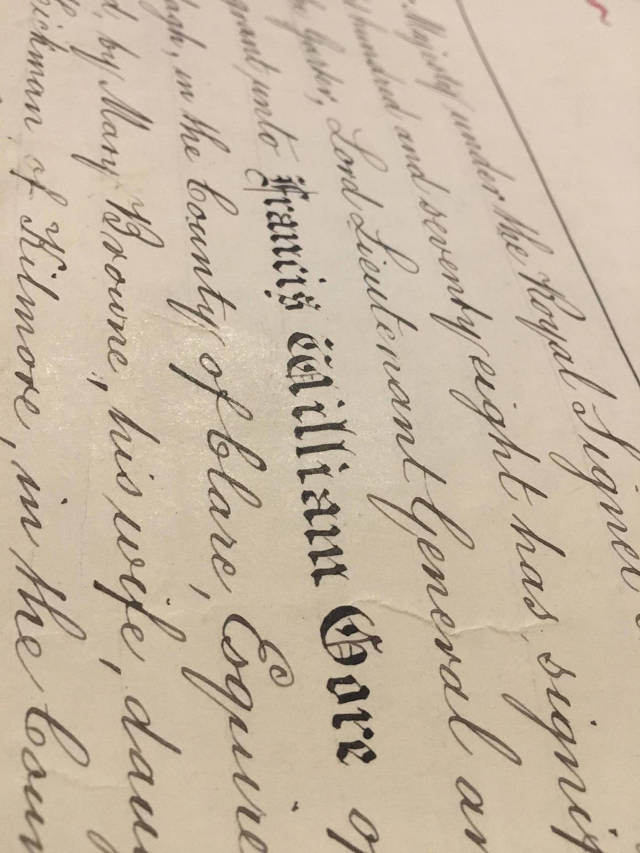 Majesty under the Royal Signet
hundred and seventy eight has signif
Garter, Lord Lieutenant General an
grant unto Francis William Gore of
agh, in the County of Clare, Esquire
d, by Mary Browne, his wife, daug
ickman of Kilmore, in the Coun